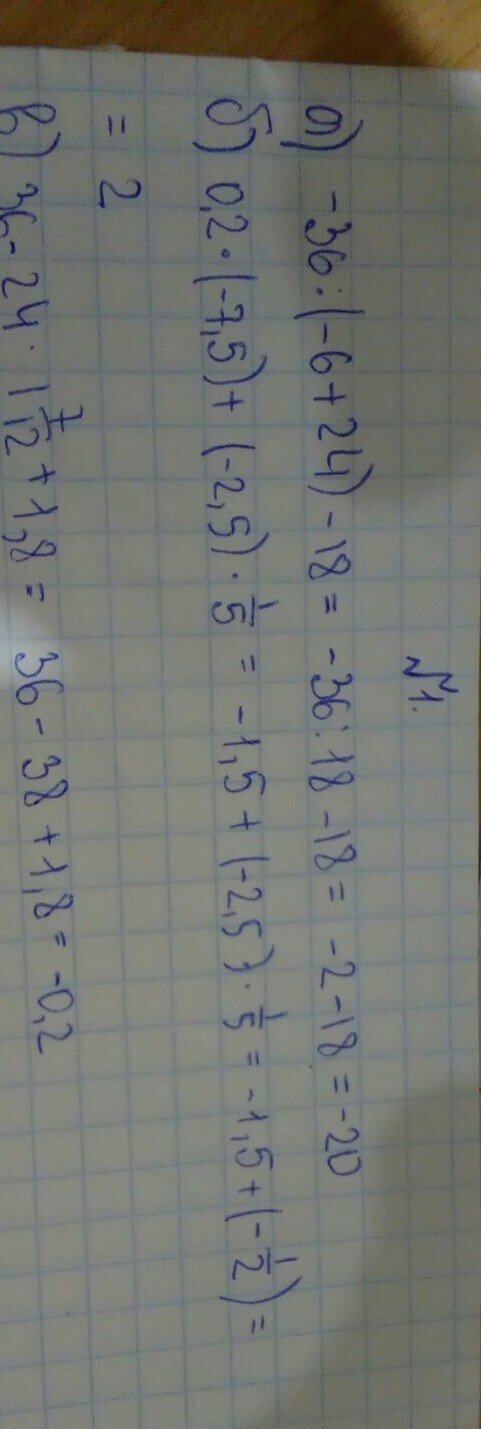 №1.
а) -36:(-6+24)-18 = -36:18-18 = -2-18 = -20
б) 0,2·(-7,5)+(-2,5)·1/5 = -1,5+(-2,5)·1/5 = -1,5+(-1/2) =
= 2
в) 36-24·1 7/12+1,8 = 36-38+1,8 = -0,2